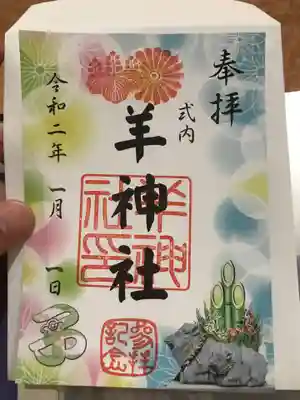 奉拝
式内
羊神社
羊神社印
参拝記念
令和二年 一月 一日
子